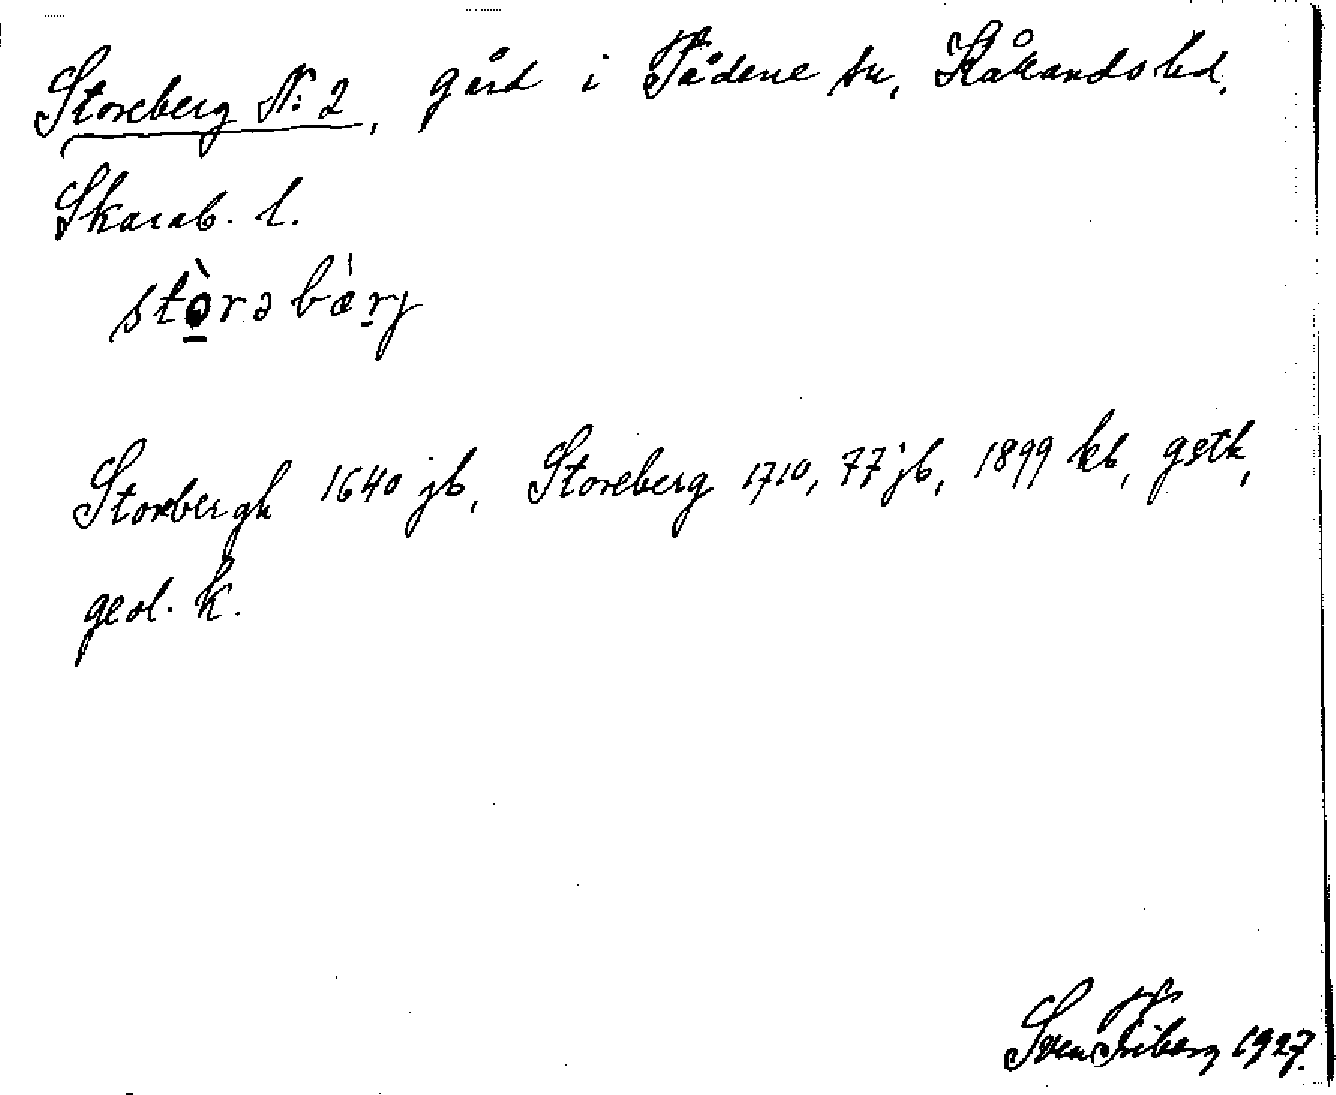 Storeberg N: 2, gård i Tådene sn, Kåkands hd.
Skarab. l.
stòrəbä̀rj
Storebergh 1640 jb, Storeberg 1710, 77 jb, 1899 kb, gstk,
geol. k.
Sven Friberg 1927.